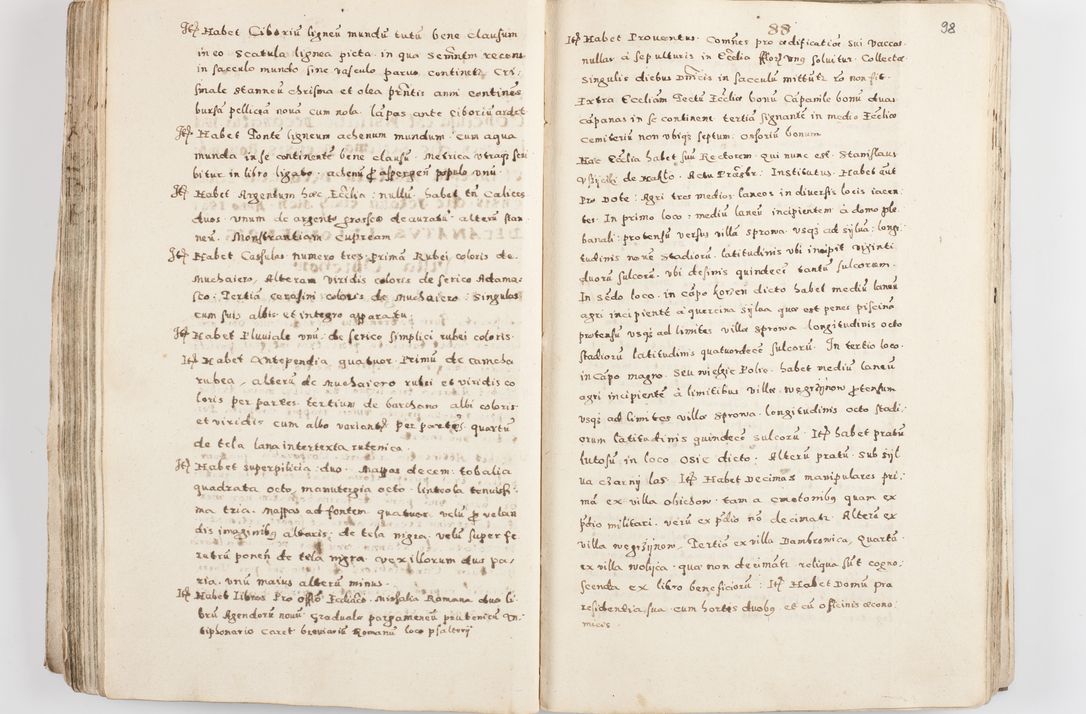 Itē Habet Ciboriū ligneū mundū tutū bene clausum
in eo scatula lignea picta in qua Sacramētm recons
in sacculo mundo sine vasculo paruo continetr Cri
smale stanneū chrisma et olea prntis anni continēs
bursā pelliceā nouā cum nola. lāpas ante Ciboriū ardet
Itē Habet Fontē ligneum achenum mundum cum aqua
munda in se continentē bene clausū. Metrica vtraqz scri
bitur in libro ligato. achenū ꝓ aspergen populo vnū
Itē Habet Argentum haec Ecclia nullū. habet tn Calices
duos. vnum de argento grosseo deauratū alterū stan
neū. Monstrantiam Cupream
Itē Habet Casulas numero tres primā Rubei coloris de
Muchaiero, Alteram viridis coloris de serico Adama
sco. Tertiā cerasini coloris de Muchaiero. Singulas
cum suis albis et integro apparatu
Itē Habet Pluuiale vnū de serico simplici rubei coloris
Itē Habet Antependia quatuor. Primū de camcha
rubea, alterū de muchaiero rubei et viridis co
loris per partes. tertium de barchano albi coloris
et viridis cum albo variantr per partes. quartū
de tela lana intertexta rutenica
Itē Habet superpilicia duo. Mappas decem. tobalia
quadrata octo, manutergia octo. linteola tenuisi
ma tria. Mappas ad fontem quatuor velū ꝓ velan
dis imaginibus altaris de tela nigra. velū super fe
retrū ponen de tela nigra vexillorum duo pa
ria. vnū maius alterū minus
Itē Habet Libros Pro offō Ecclico. Missalia Romana duo li
brū Agendorū nouū Graduale pargameneū Antiphonariū An
tiphonario Caret breuiariū Romanū loco psalterij
88
98
Itē Habet Prouentus. Comunes pro aedificatiōe sui vaccas
nullas à sepulturis in Ecclia flor vnus soluitur. Collecta
singulis diebus Dnicis in sacculū mittitr ro non fit
Extra Eccliam Tectū Eccliae bonū Cāpanile bonū duas
cāpanas in se continent tertiā signantē in medio Eccliae
Cemiteriū non vbiqz septum. ossoriū bonum
Haec Ecclia habet suū Rectorem qui nunc est. Stanislaus
de Actu Praesbr. Institutus. Habet aūt
Pro Dote. Agri tres medios laneos in diuersis locis iacen
tes. In primo loco. mediū laneū incipientem à domo ple
banali. protensū versus villā Sprowa. vsqz ad syluā longi
tudinis nouē stadiorū. latitudinis vbi incipit viginti
duorū sulcorū. vbi desinis quindecē tantū sulcorum.
In sēdo loco. in cāpo korzen dicto habet mediū laneū
agri incipientē à quercina sylua quae est penes piscinā
protensū vsqz ad limites villae Sprowa. longitudinis octo
stadiorū latitudinis quatuordecē sulcorū. In tertio loco
in cāpo magno. Seu wielgie Polie. habet mediū laneū
agri incipientē à limitibus villae Wegrzijnow ꝓtensum
vsqz ad limites villae Sprowa. longitudinis octo stadi
orum latitudinis quindecē sulcorū. Itē habet pratū
lutosū in loco Osie dicto. Alterū pratū. Sub syl
ua czarnij las. Itē Habet Decimas manipulares pri
mā ex villa obiechow. tam a cmetonibus quam ex
pdio militari. verū ex pdio nō decimatr. Alterā ex
villa wegrzijnow, Tertiā ex villa Dambrowica, quartā
ex villa wolijca. qua non decimatr reliqua sūt cogno
scenda ex libro beneficiorū. Itē Habet Domū pro
residentia sua cum hortis duobus et cū officinis aecono
micis